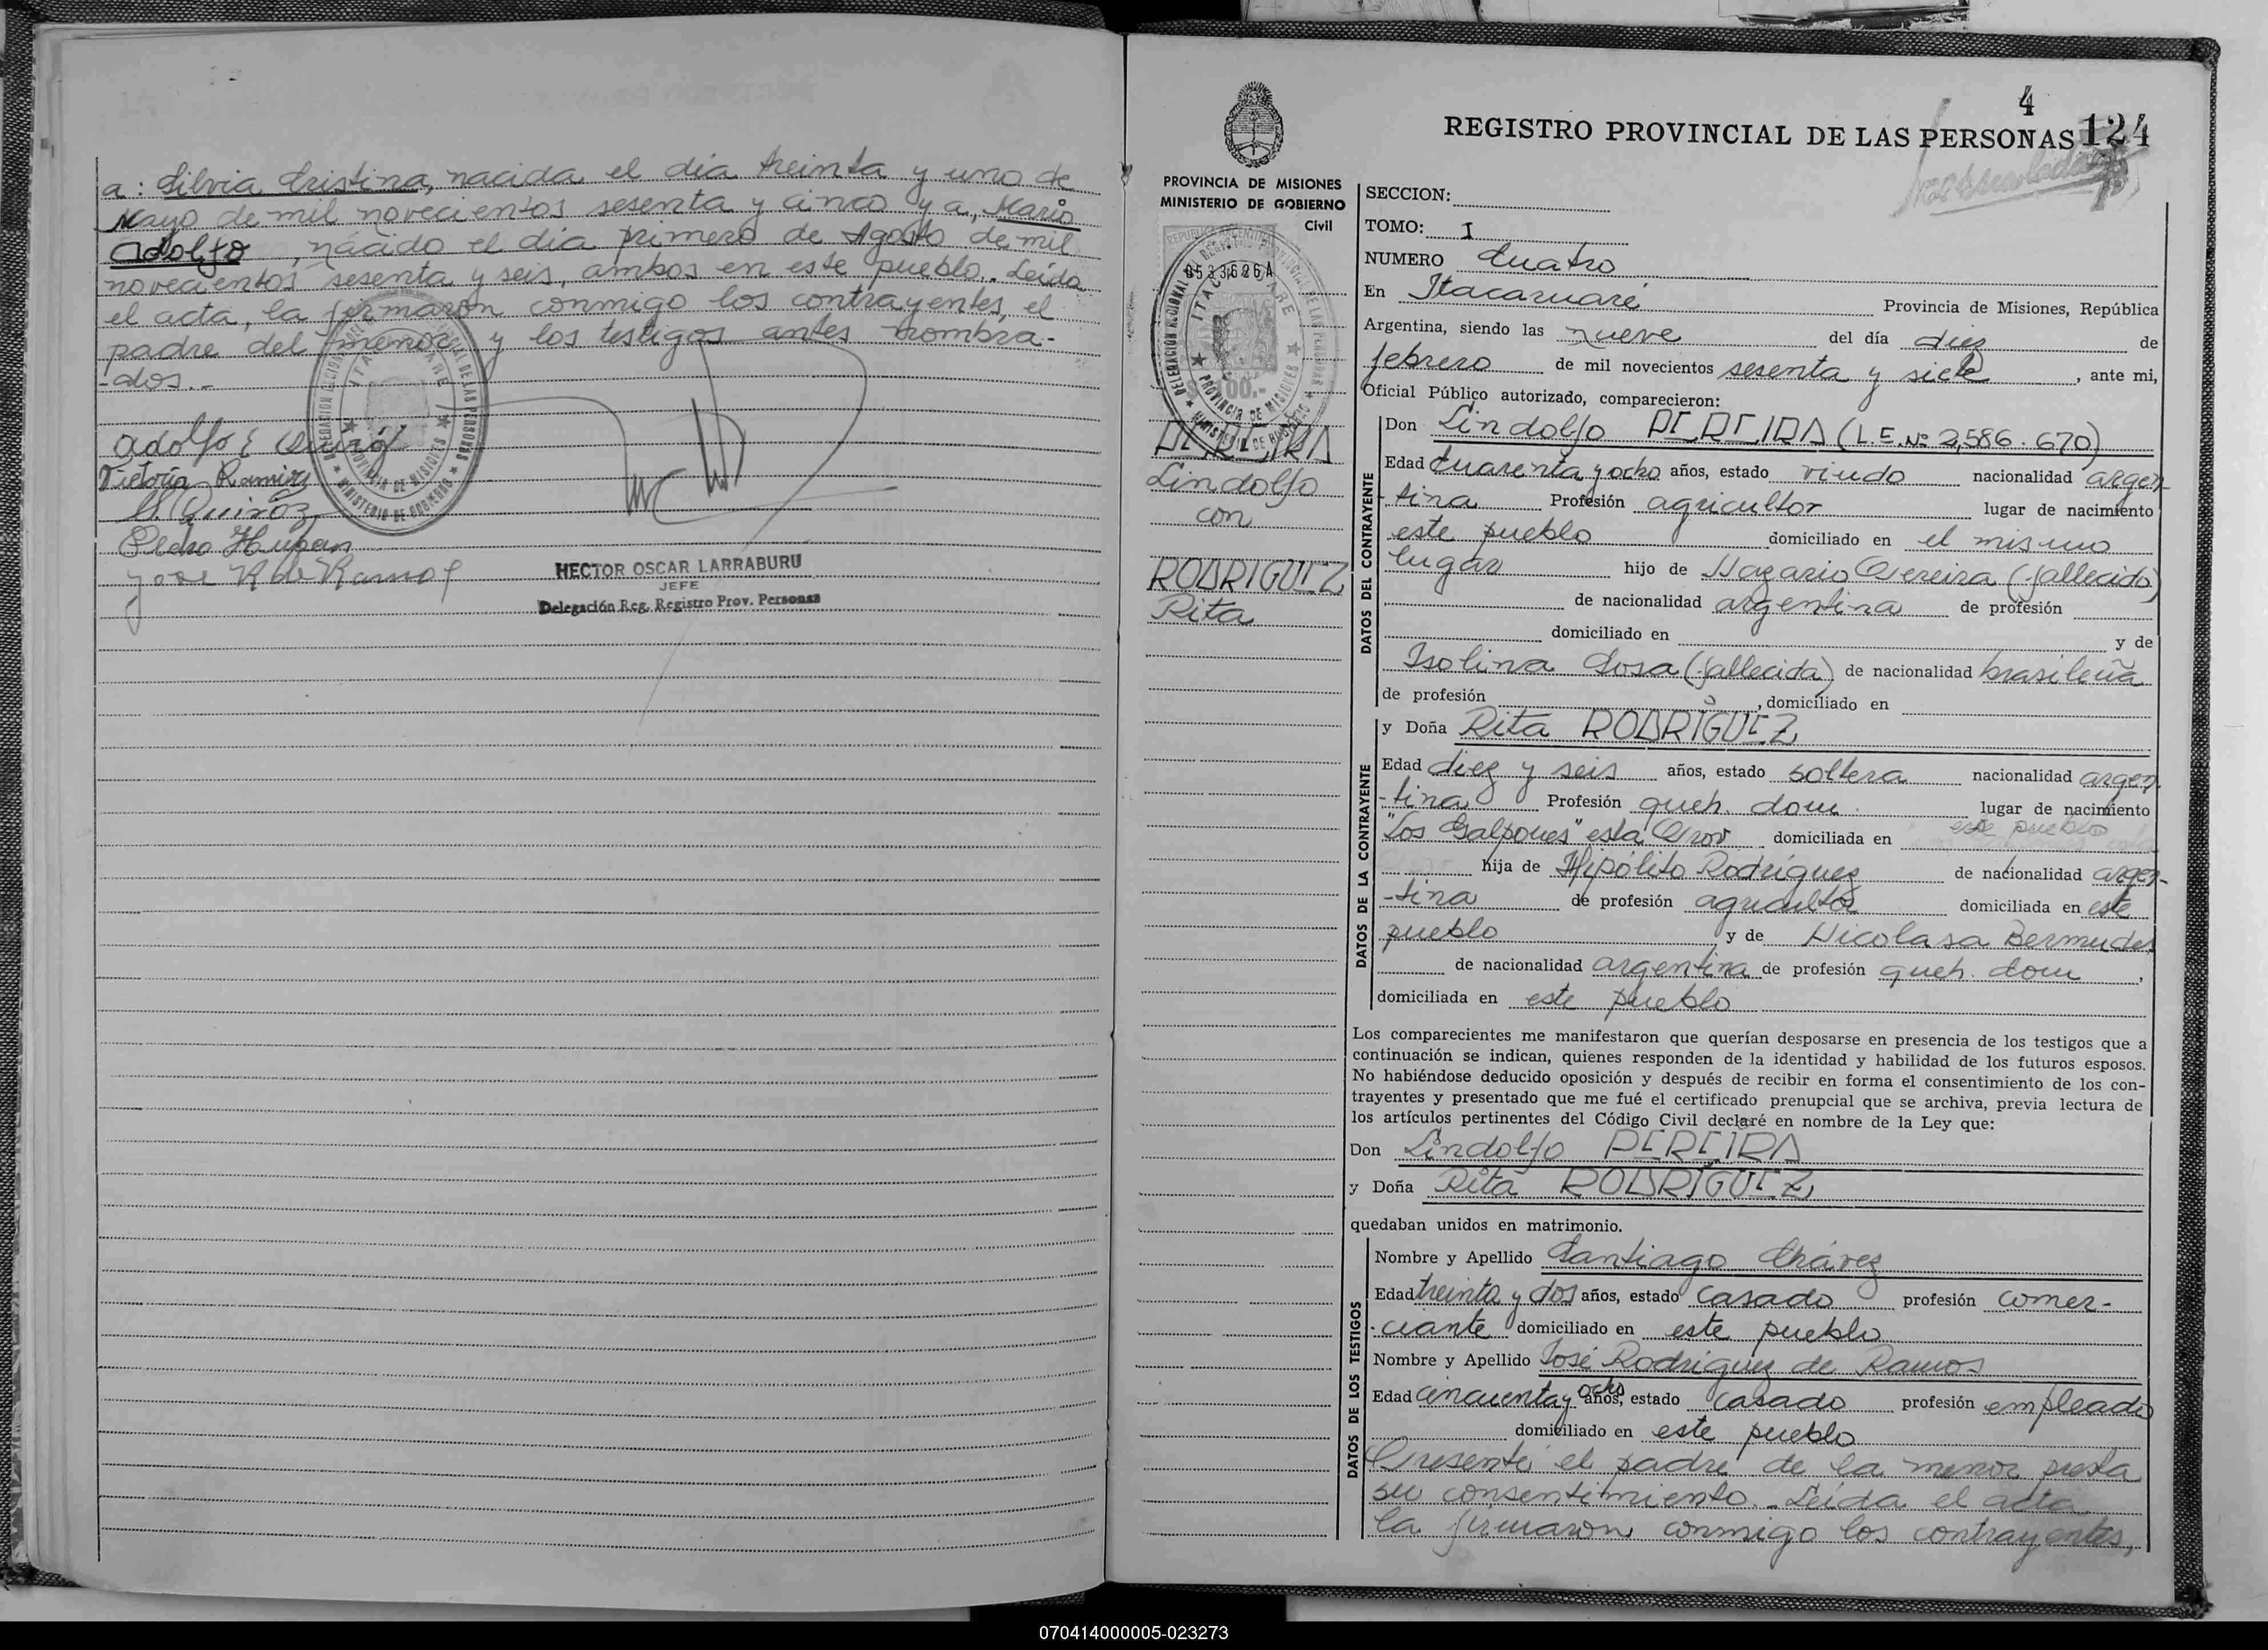 a: Silvia Cristina, nacida el día treinta y uno de
Mayo de mil novecientos sesenta y cinco y a, Mario
Adolfo, nacido el día primero de Agosto de mil
novecientos sesenta y seis, ambos en este pueblo.. Leída
el acta, la firmaron conmigo los contrayentes, el
padre del menor y los testigos antes nombra-
-dos.-
Adolfo E Quiróz
Victoria Ramirez
Quiróz
Pedro Hupan
Jose R de Ramos
HECTOR OSCAR LARRABURU
JEFE
Delegación Reg. Registro Prov. Personas
4
REGISTRO PROVINCIAL DE LAS PERSONAS 124
PROVINCIA DE MISIONES
MINISTERIO DE GOBIERNO
Civil
0533626A
ITACARUARE
PROVINCIA DE MISIONES
PEREIRA
Lindolfo
con
RODRIGUEZ
Rita
SECCION:
TOMO: I
NUMERO Cuatro
En Itacaruaré Provincia de Misiones, República
Argentina, siendo las nueve del día diez de
febrero de mil novecientos sesenta y siete, ante mi,
Oficial Público autorizado, comparecieron:
DATOS DEL CONTRAYENTE
Don Lindolfo PEREIRA (L.E. Nº 2,586.670)
Edad cuarenta y ocho años, estado viudo nacionalidad argen-
-tina Profesión agricultor lugar de nacimiento
este pueblo domiciliado en el mismo
lugar hijo de Nazario Pereira (fallecido)
de nacionalidad argentina de profesión
domiciliado en y de
Isolina Sosa (fallecida) de nacionalidad brasileña
de profesión , domiciliado en
DATOS DE LA CONTRAYENTE
y Doña Rita RODRÍGUEZ
Edad diez y seis años, estado soltera nacionalidad argen-
-tina Profesión queh. dom. lugar de nacimiento
"Los Galpones" esta Prov. domiciliada en este pueblo
hija de Hipólito Rodríguez de nacionalidad argen-
-tina de profesión agricultor domiciliada en este
pueblo y de Nicolasa Bermudez
de nacionalidad argentina de profesión queh. dom ,
domiciliada en este pueblo
Los comparecientes me manifestaron que querían desposarse en presencia de los testigos que a
continuación se indican, quienes responden de la identidad y habilidad de los futuros esposos.
No habiéndose deducido oposición y después de recibir en forma el consentimiento de los con-
trayentes y presentado que me fué el certificado prenupcial que se archiva, previa lectura de
los artículos pertinentes del Código Civil declaré en nombre de la Ley que:
Don Lindolfo PEREIRA
y Doña Rita RODRÍGUEZ
quedaban unidos en matrimonio.
DATOS DE LOS TESTIGOS
Nombre y Apellido Santiago Chávez
Edad treinta y dos años, estado casado profesión comer-
-ciante domiciliado en este pueblo
Nombre y Apellido José Rodríguez de Ramos
Edad cincuenta y ocho años, estado casado profesión empleado
domiciliado en este pueblo
Presente el padre de la menor presta
su consentimiento.- Leída el acta
la firmaron conmigo los contrayentes,
070414000005-023273